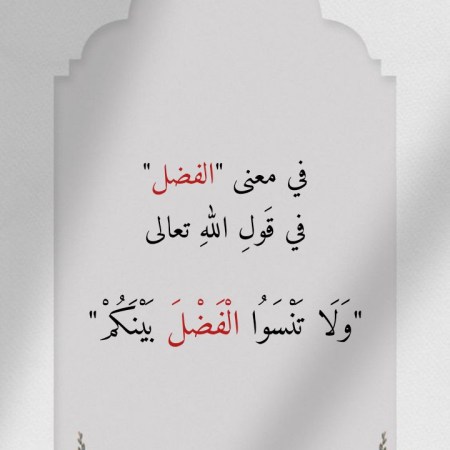 في معنى "الفضل"
في قَولِ اللهِ تعالى
"وَلَا تَنْسَوُا الْفَضْلَ بَيْنَكُمْ"